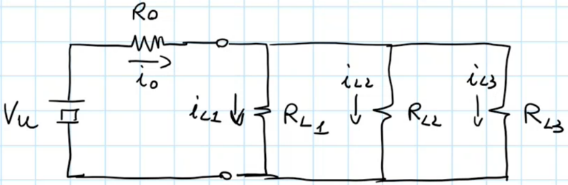 R0
i0
Vu
iL1
RL1
iL2
RL2
iL3
RL3